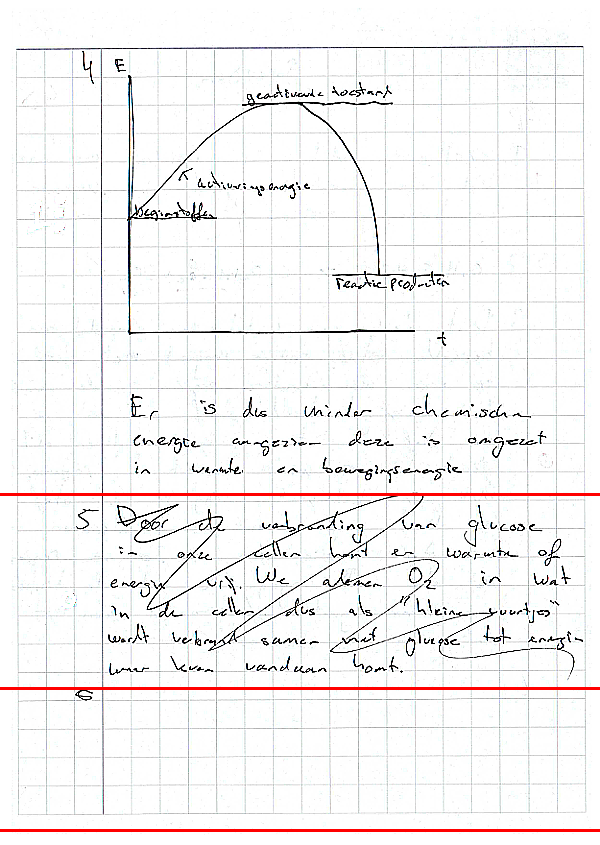 4 E
geactiveerde toestand
activeringsenergie
beginstoffen
reactie producten
t
Er is dus minder chemische
energie aangezien deze is omgezet
in warmte en bewegingsenergie
5 Door de verbranding van glucose
in onze cellen komt er warmte of
energie vrij. We ademen O2 in wat
in de cellen dus als "kleine vuurtjes"
wordt verbrand samen met glucose tot energie
waar leven vandaan komt.
6